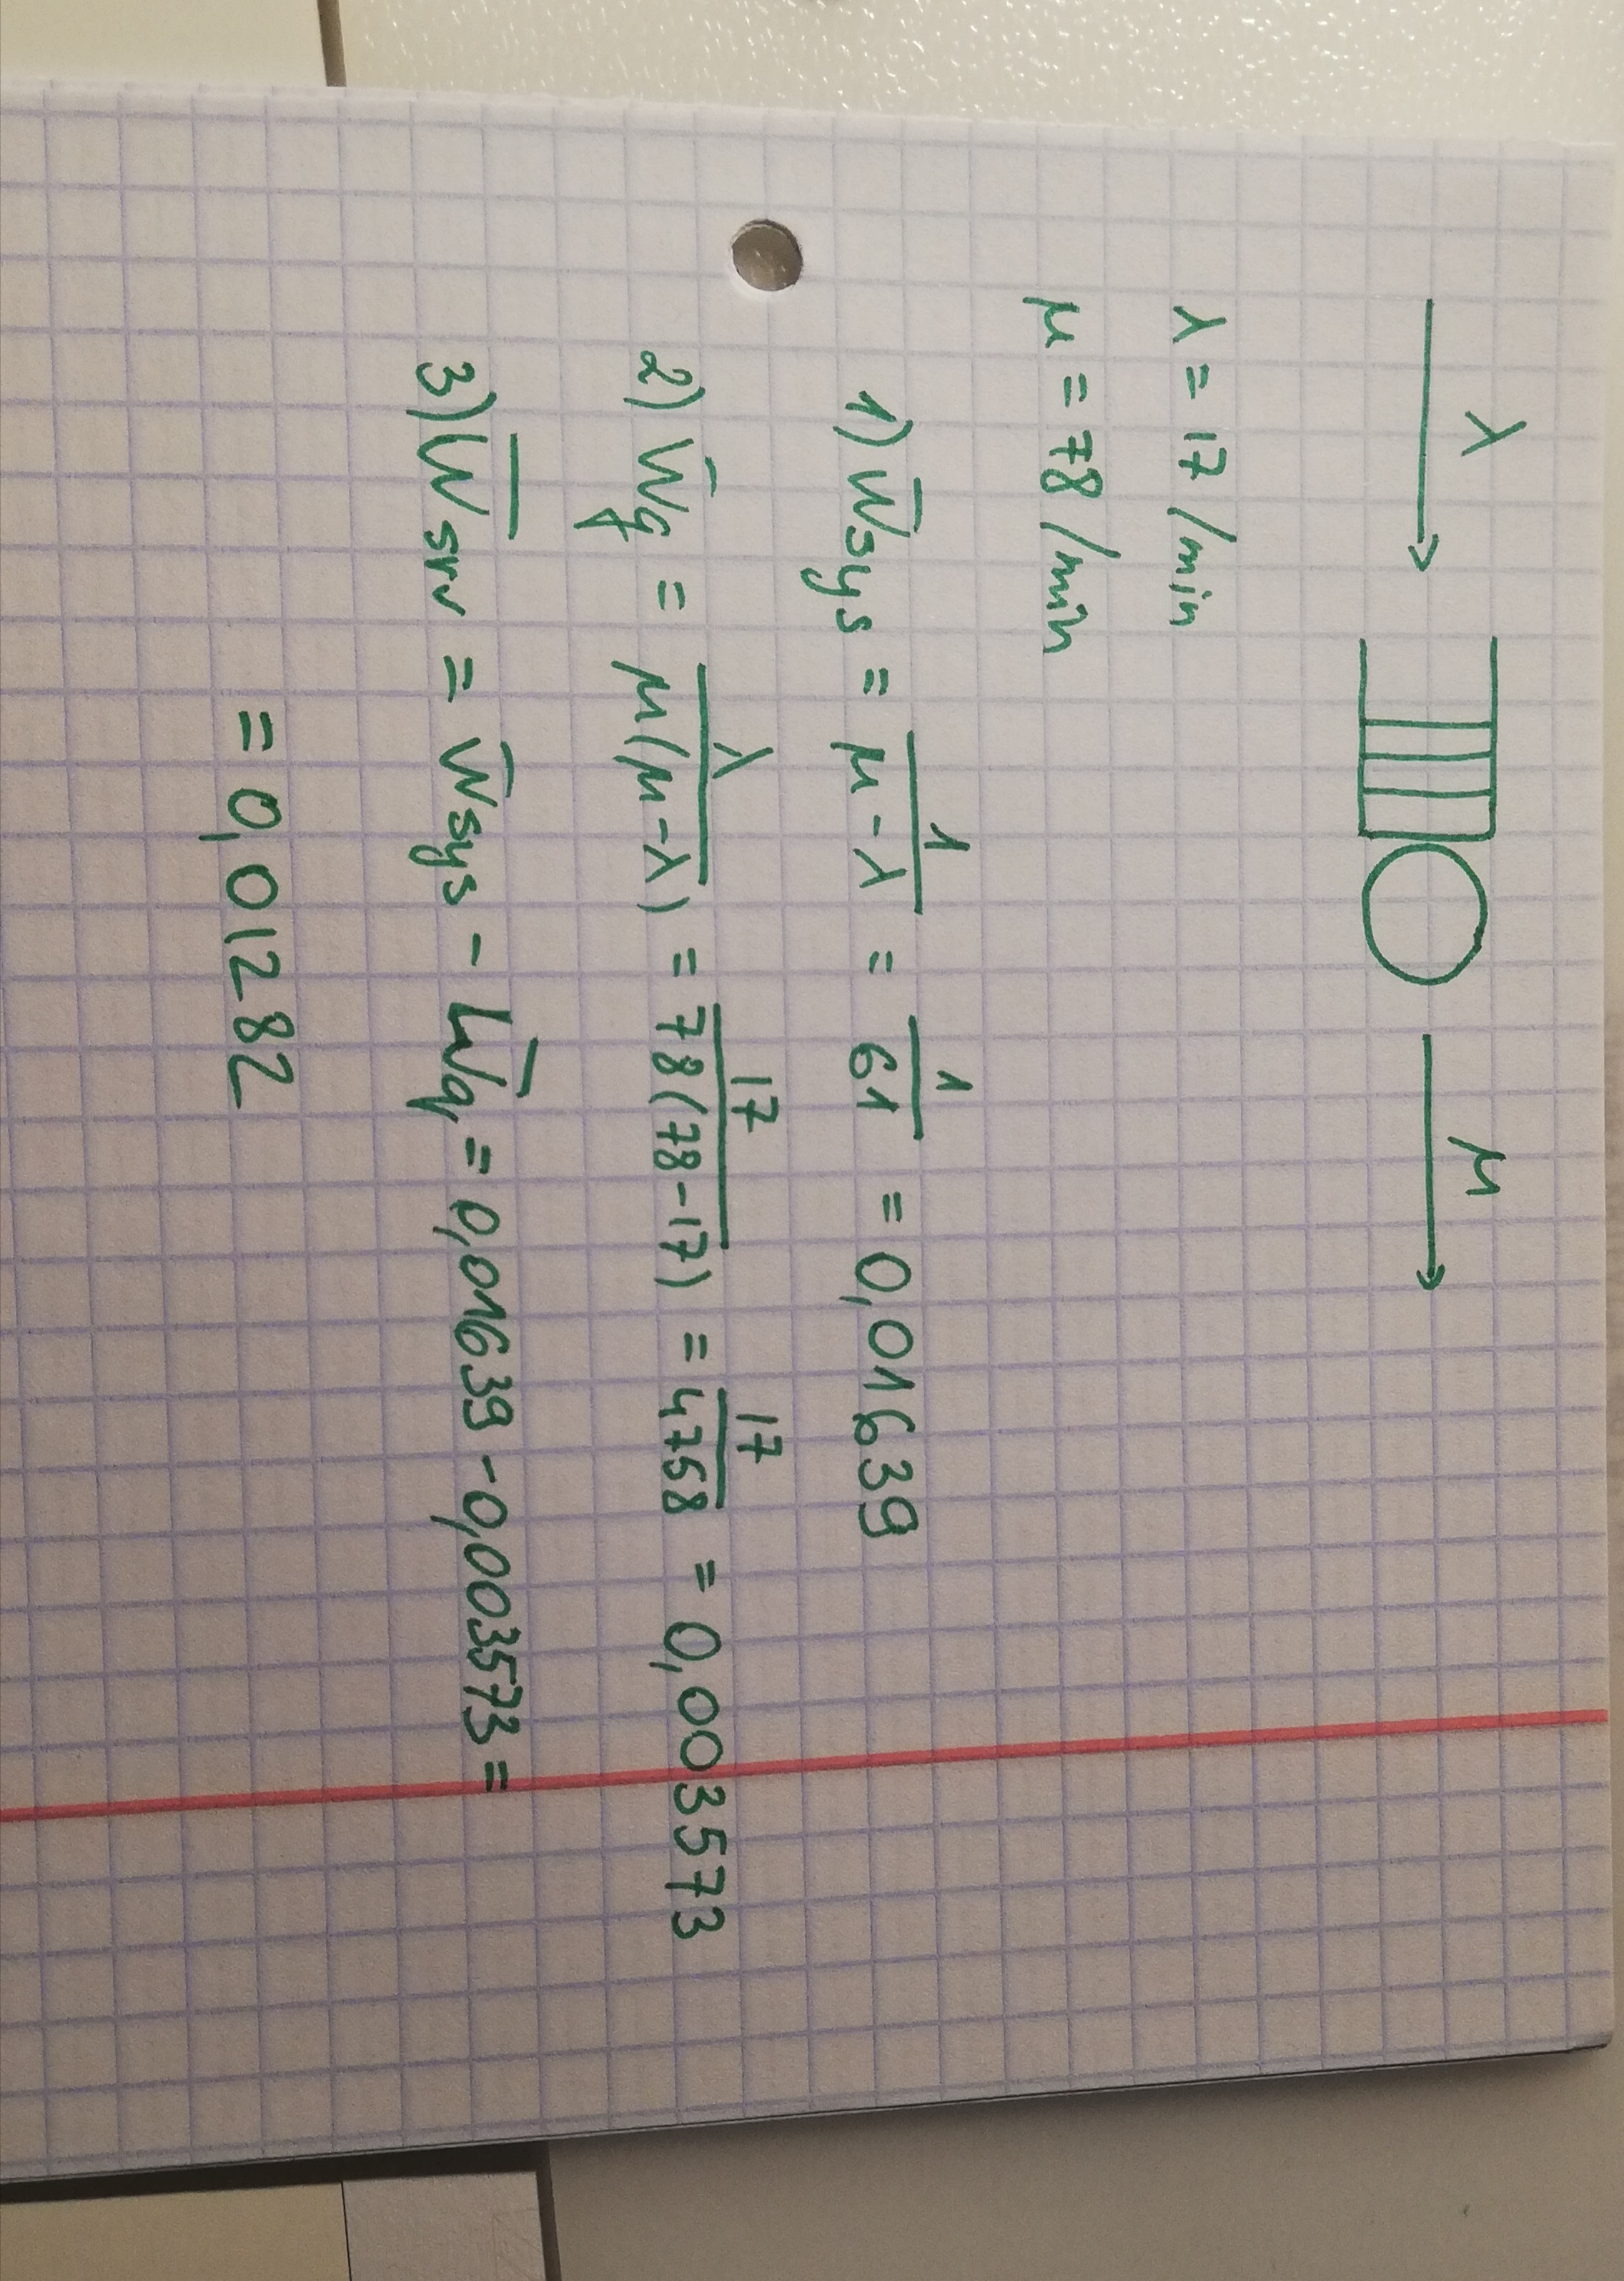 λ μ
λ = 17 /min
μ = 78 /min
1) W̅sys = 1/(μ-λ) = 1/61 = 0,01639
2) W̅q = λ/(μ(μ-λ)) = 17/(78(78-17)) = 17/4758 = 0,003573
3) W̅srv = W̅sys - W̅q = 0,01639 - 0,003573 =
= 0,01282